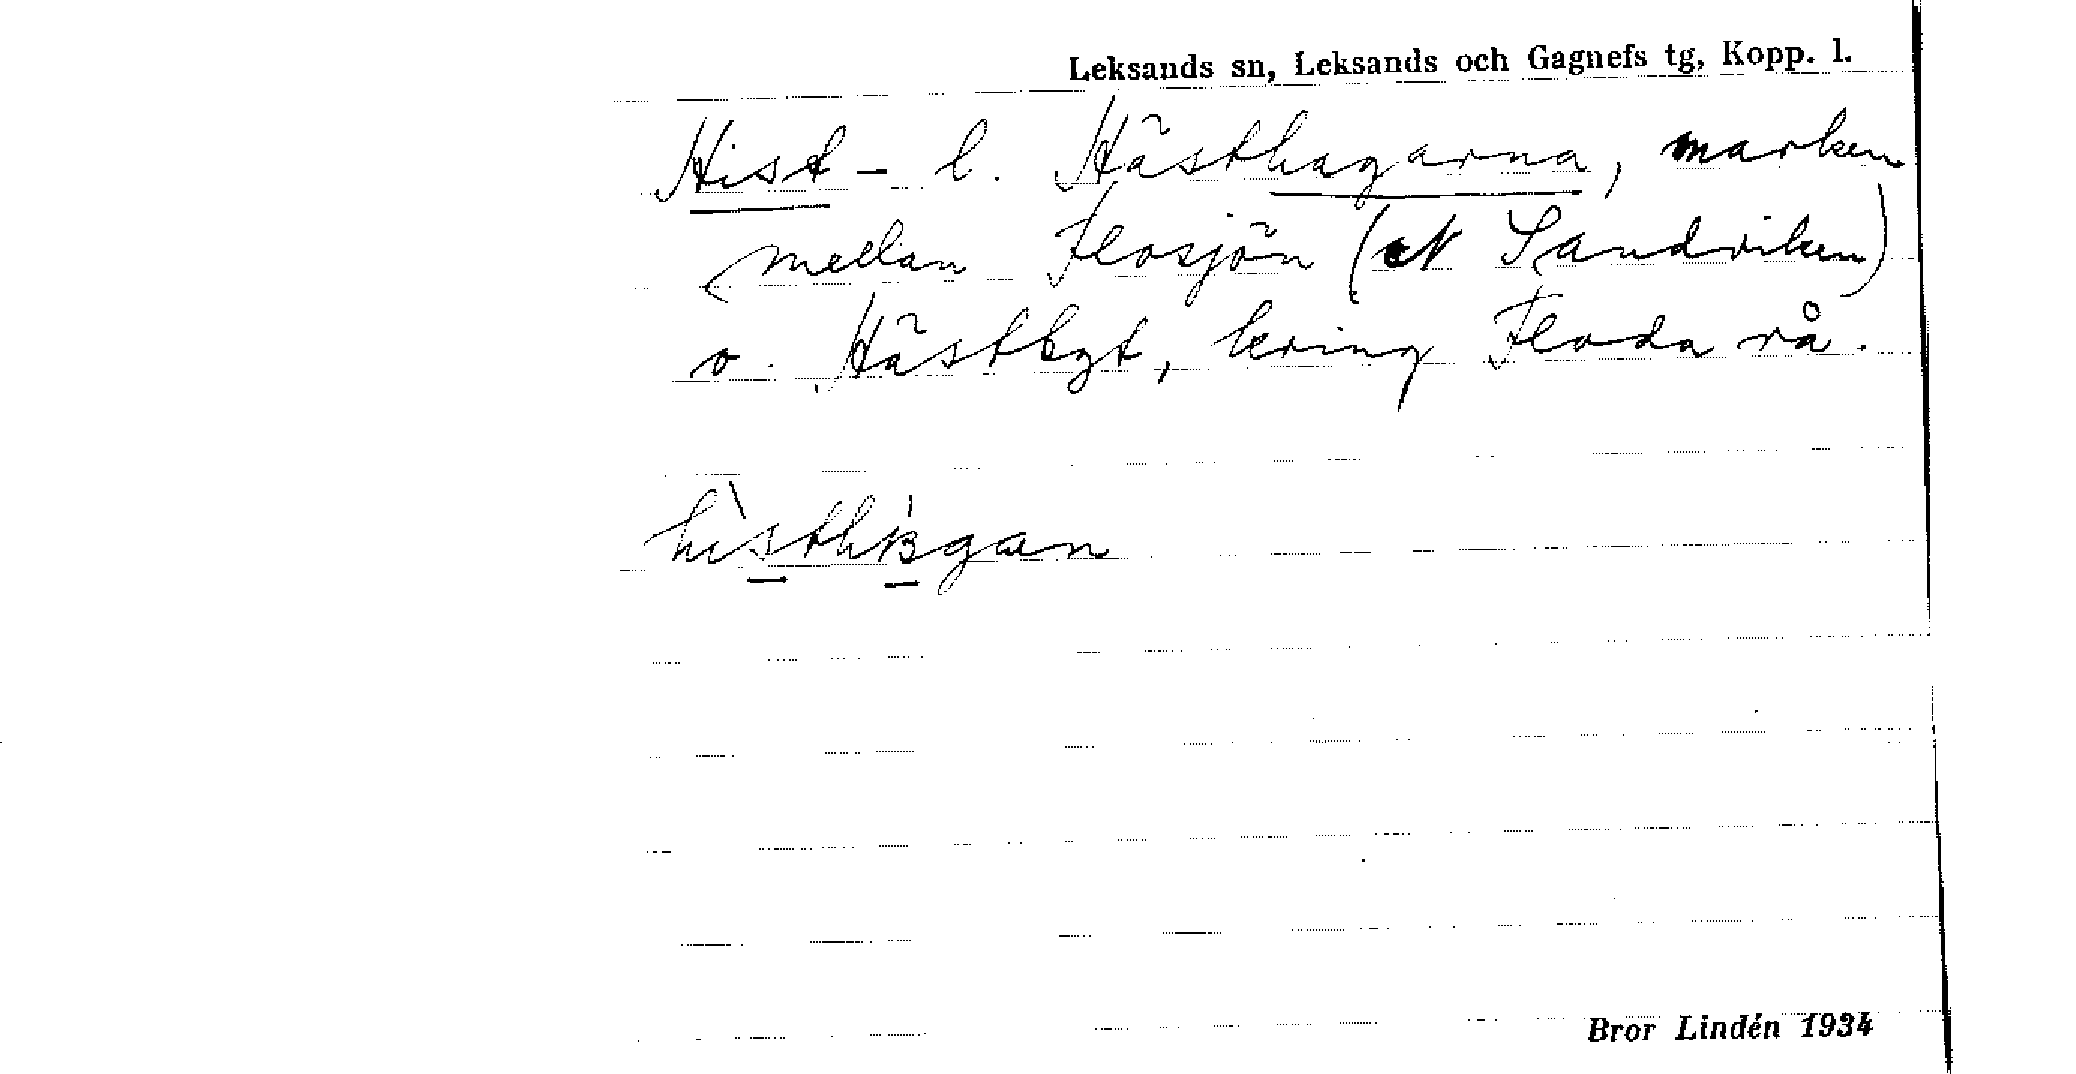 Leksands sn, Leksands och Gagnefs tg, Kopp. l.
Hist- l. Hästhagarna, marken
mellan Flosjön (N Sandviken)
o. Hästbgt, kring Floda rå.
Bror Lindén 1934